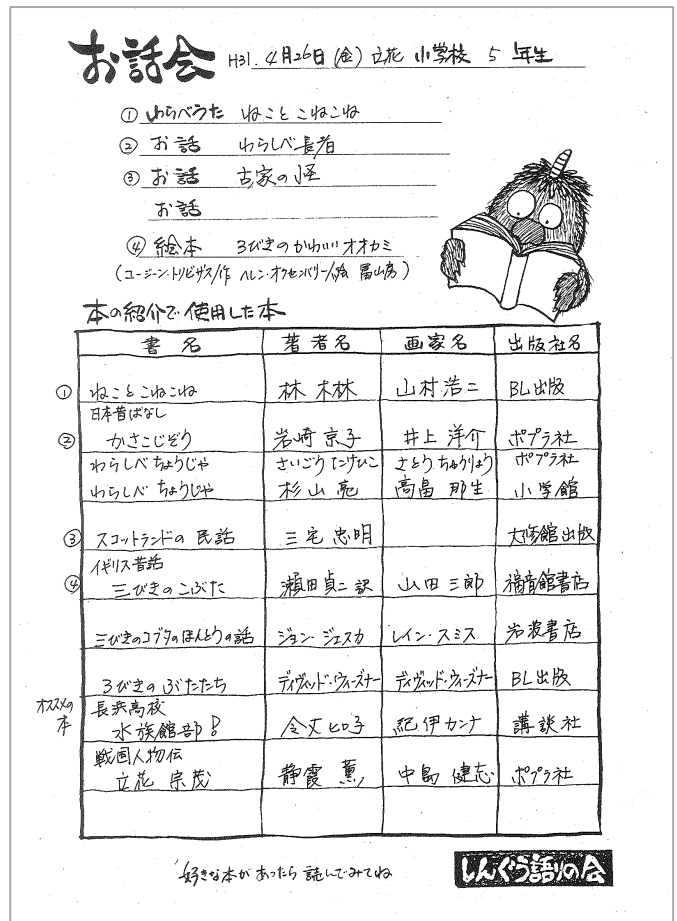 お話会 H31. 4月26日(金) 立花 小学校 5 年生
① わらべうた ねこと こねこね
② お話 わらしべ長者
③ お話 古家の怪
お話
④ 絵本 3びきのかわいいオオカミ
(ユージーン・トリビザス/作 ヘレン・オクセンバリー/絵 冨山房)
本の紹介で使用した本
書名 著者名 画家名 出版社名
① ねことこねこね 林 木林 山村浩二 BL出版
日本昔ばなし
② かさこじぞう 岩崎 京子 井上 洋介 ポプラ社
わらしべ ちょうじゃ さいごう たけひこ さとう ちゅうりょう ポプラ社
わらしべ ちょうじゃ 杉山 亮 高畠 那生 小学館
③ スコットランドの 民話 三宅 忠明 大修館出版
イギリス昔話
④ 三びきのこぶた 瀬田 貞二 訳 山田 三郎 福音館書店
三びきのコブタのほんとうの話 ジョン・シェスカ レイン・スミス 岩波書店
3びきの ぶたたち ディヴィッド・ウィーズナー ディヴィッド・ウィーズナー BL出版
オススメの本
長浜高校
水族館部! 令丈 ヒロ子 紀伊カンナ 講談社
戦国人物伝
立花 宗茂 静霞 薫 中島 健志 ポプラ社
好きな本が あったら 読んでみてね
しんぐう語りの会